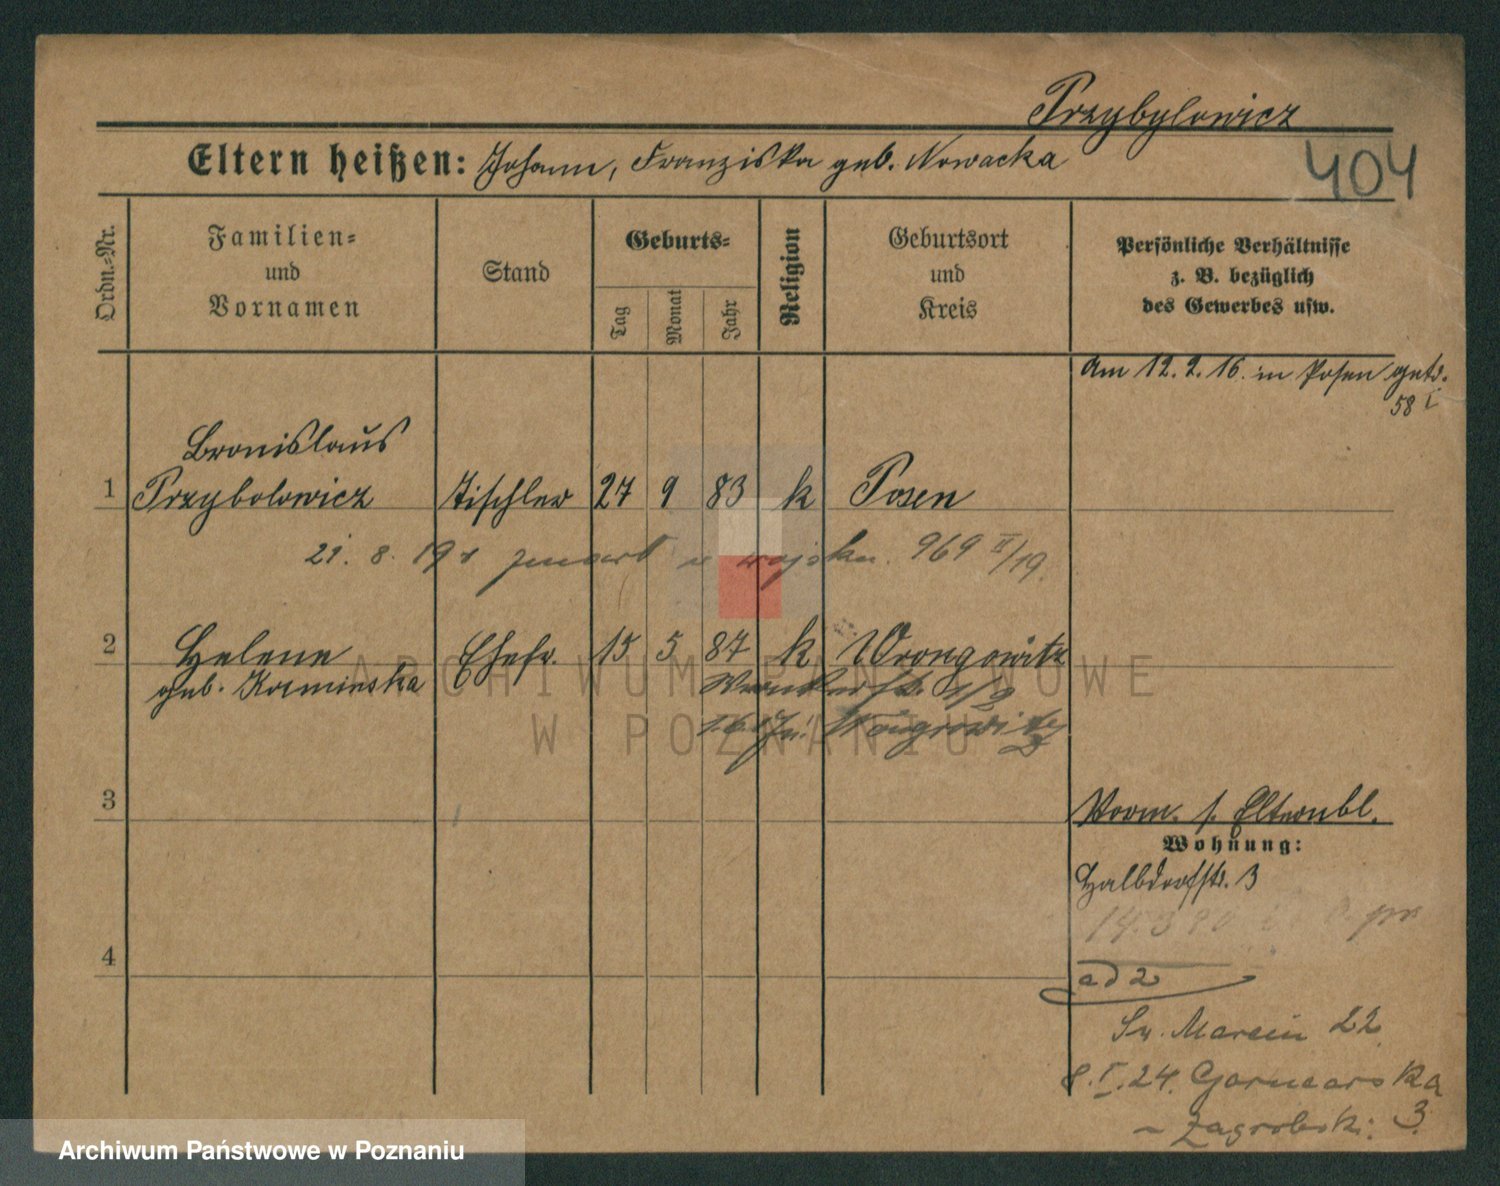 Przybylowicz
Eltern heißen: Johann, Franziska geb. Nowacka
404
Ordn.-Nr.
Familien-
und
Vornamen
Stand
Geburts-
Tag
Monat
Jahr
Religion
Geburtsort
und
Kreis
Persönliche Verhältnisse
z. B. bezüglich
des Gewerbes usw.
Am 12. 2. 16. in Posen getr.
58 I
Bronislaus
1 Przybolowicz Tischler 27 9 83 k Posen
21. 8. 19 w wojsku. 969 II/19.
2 Helene Ehefr. 15 5 87 k Wrongowitz
geb. Kozminska
3
Vorm. s. Elternbl.
Wohnung:
Halbdorfstr. 3
4
ad 2
Sw. Marcin 22
8. I. 24. Garncarska
3.
- Zagrobski.
ARCHIWUM PAŃSTWOWE
W POZNANIU
Archiwum Państwowe w Poznaniu